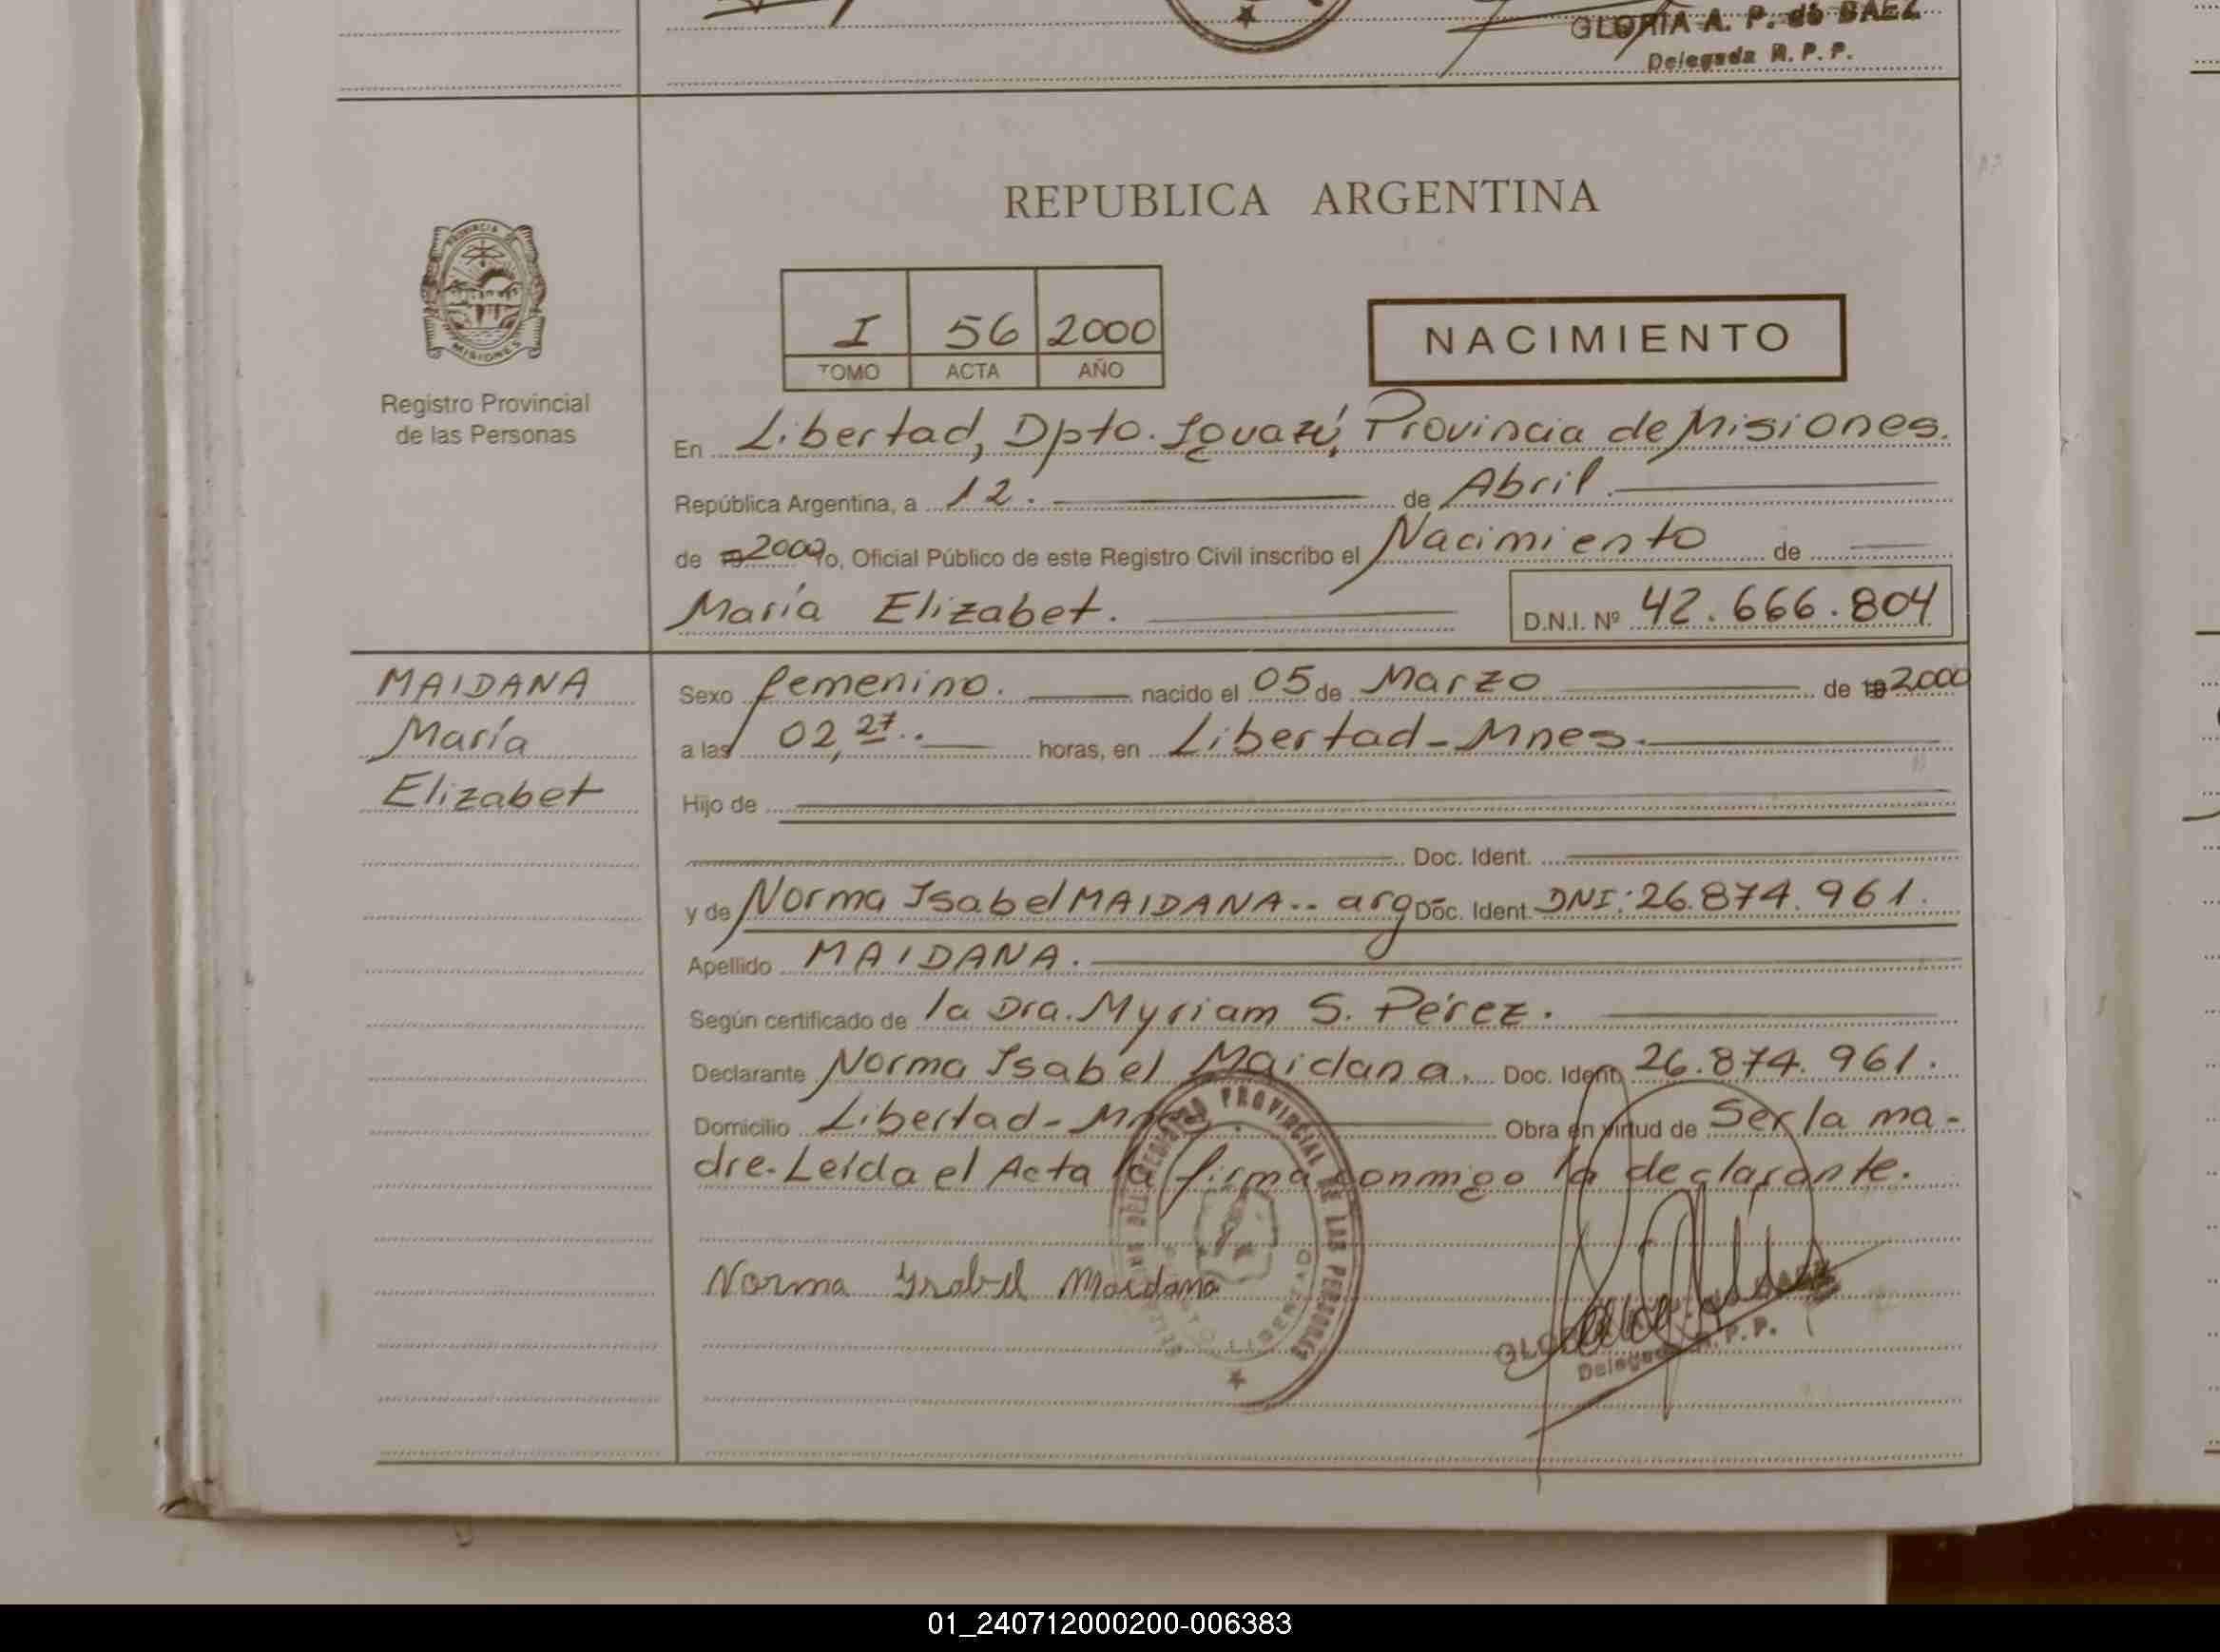 GLORIA A. P. de BAEZ
Delegada R. P. P.
REPUBLICA ARGENTINA
PROVINCIA DE
MISIONES
Registro Provincial
de las Personas
I 56 2000
TOMO ACTA AÑO
NACIMIENTO
En Libertad, Dpto. Iguazú, Provincia de Misiones.
República Argentina, a 12. de Abril.
de 19 2000 Yo, Oficial Público de este Registro Civil inscribo el Nacimiento de
María Elizabet. D.N.I. Nº 42.666.804
MAIDANA
María
Elizabet
Sexo femenino. nacido el 05 de Marzo de 19 2000
a las 02,27.. horas, en Libertad - Mnes.
Hijo de
Doc. Ident.
y de Norma Isabel MAIDANA.. arg Doc. Ident. DNI: 26.874.961.
Apellido MAIDANA.
Según certificado de la Dra. Myriam S. Pérez.
Declarante Norma Isabel Maidana. Doc. Ident. 26.874.961.
Domicilio Libertad - Mnes. Obra en virtud de Ser la ma-
dre. Leída el Acta la firma conmigo la declarante.
REGISTRO PROVINCIAL DE LAS PERSONAS
LIBERTAD
Norma Ysabel Maidana
Delegada R. P. P.
01_240712000200-006383